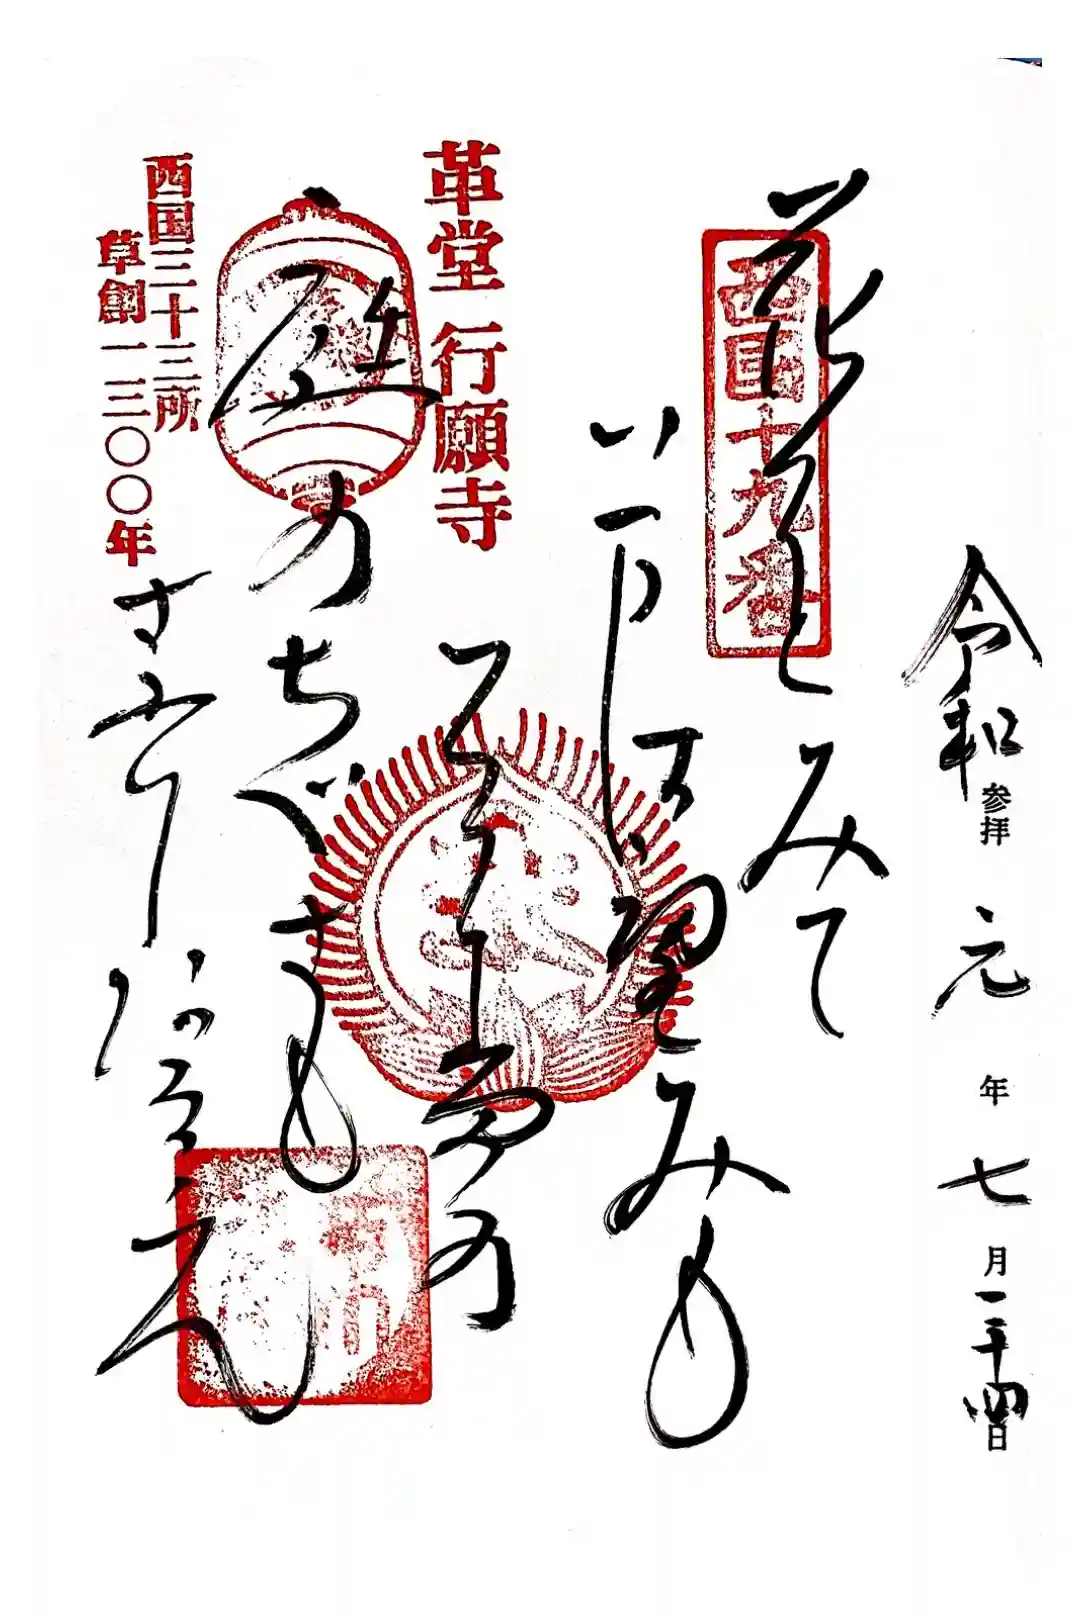 令和参拝元年七月二十四日
西国十九番
花をみて
いまは望みも
革堂 行願寺
庭のちぐさも
西国三十三所
草創一三〇〇年